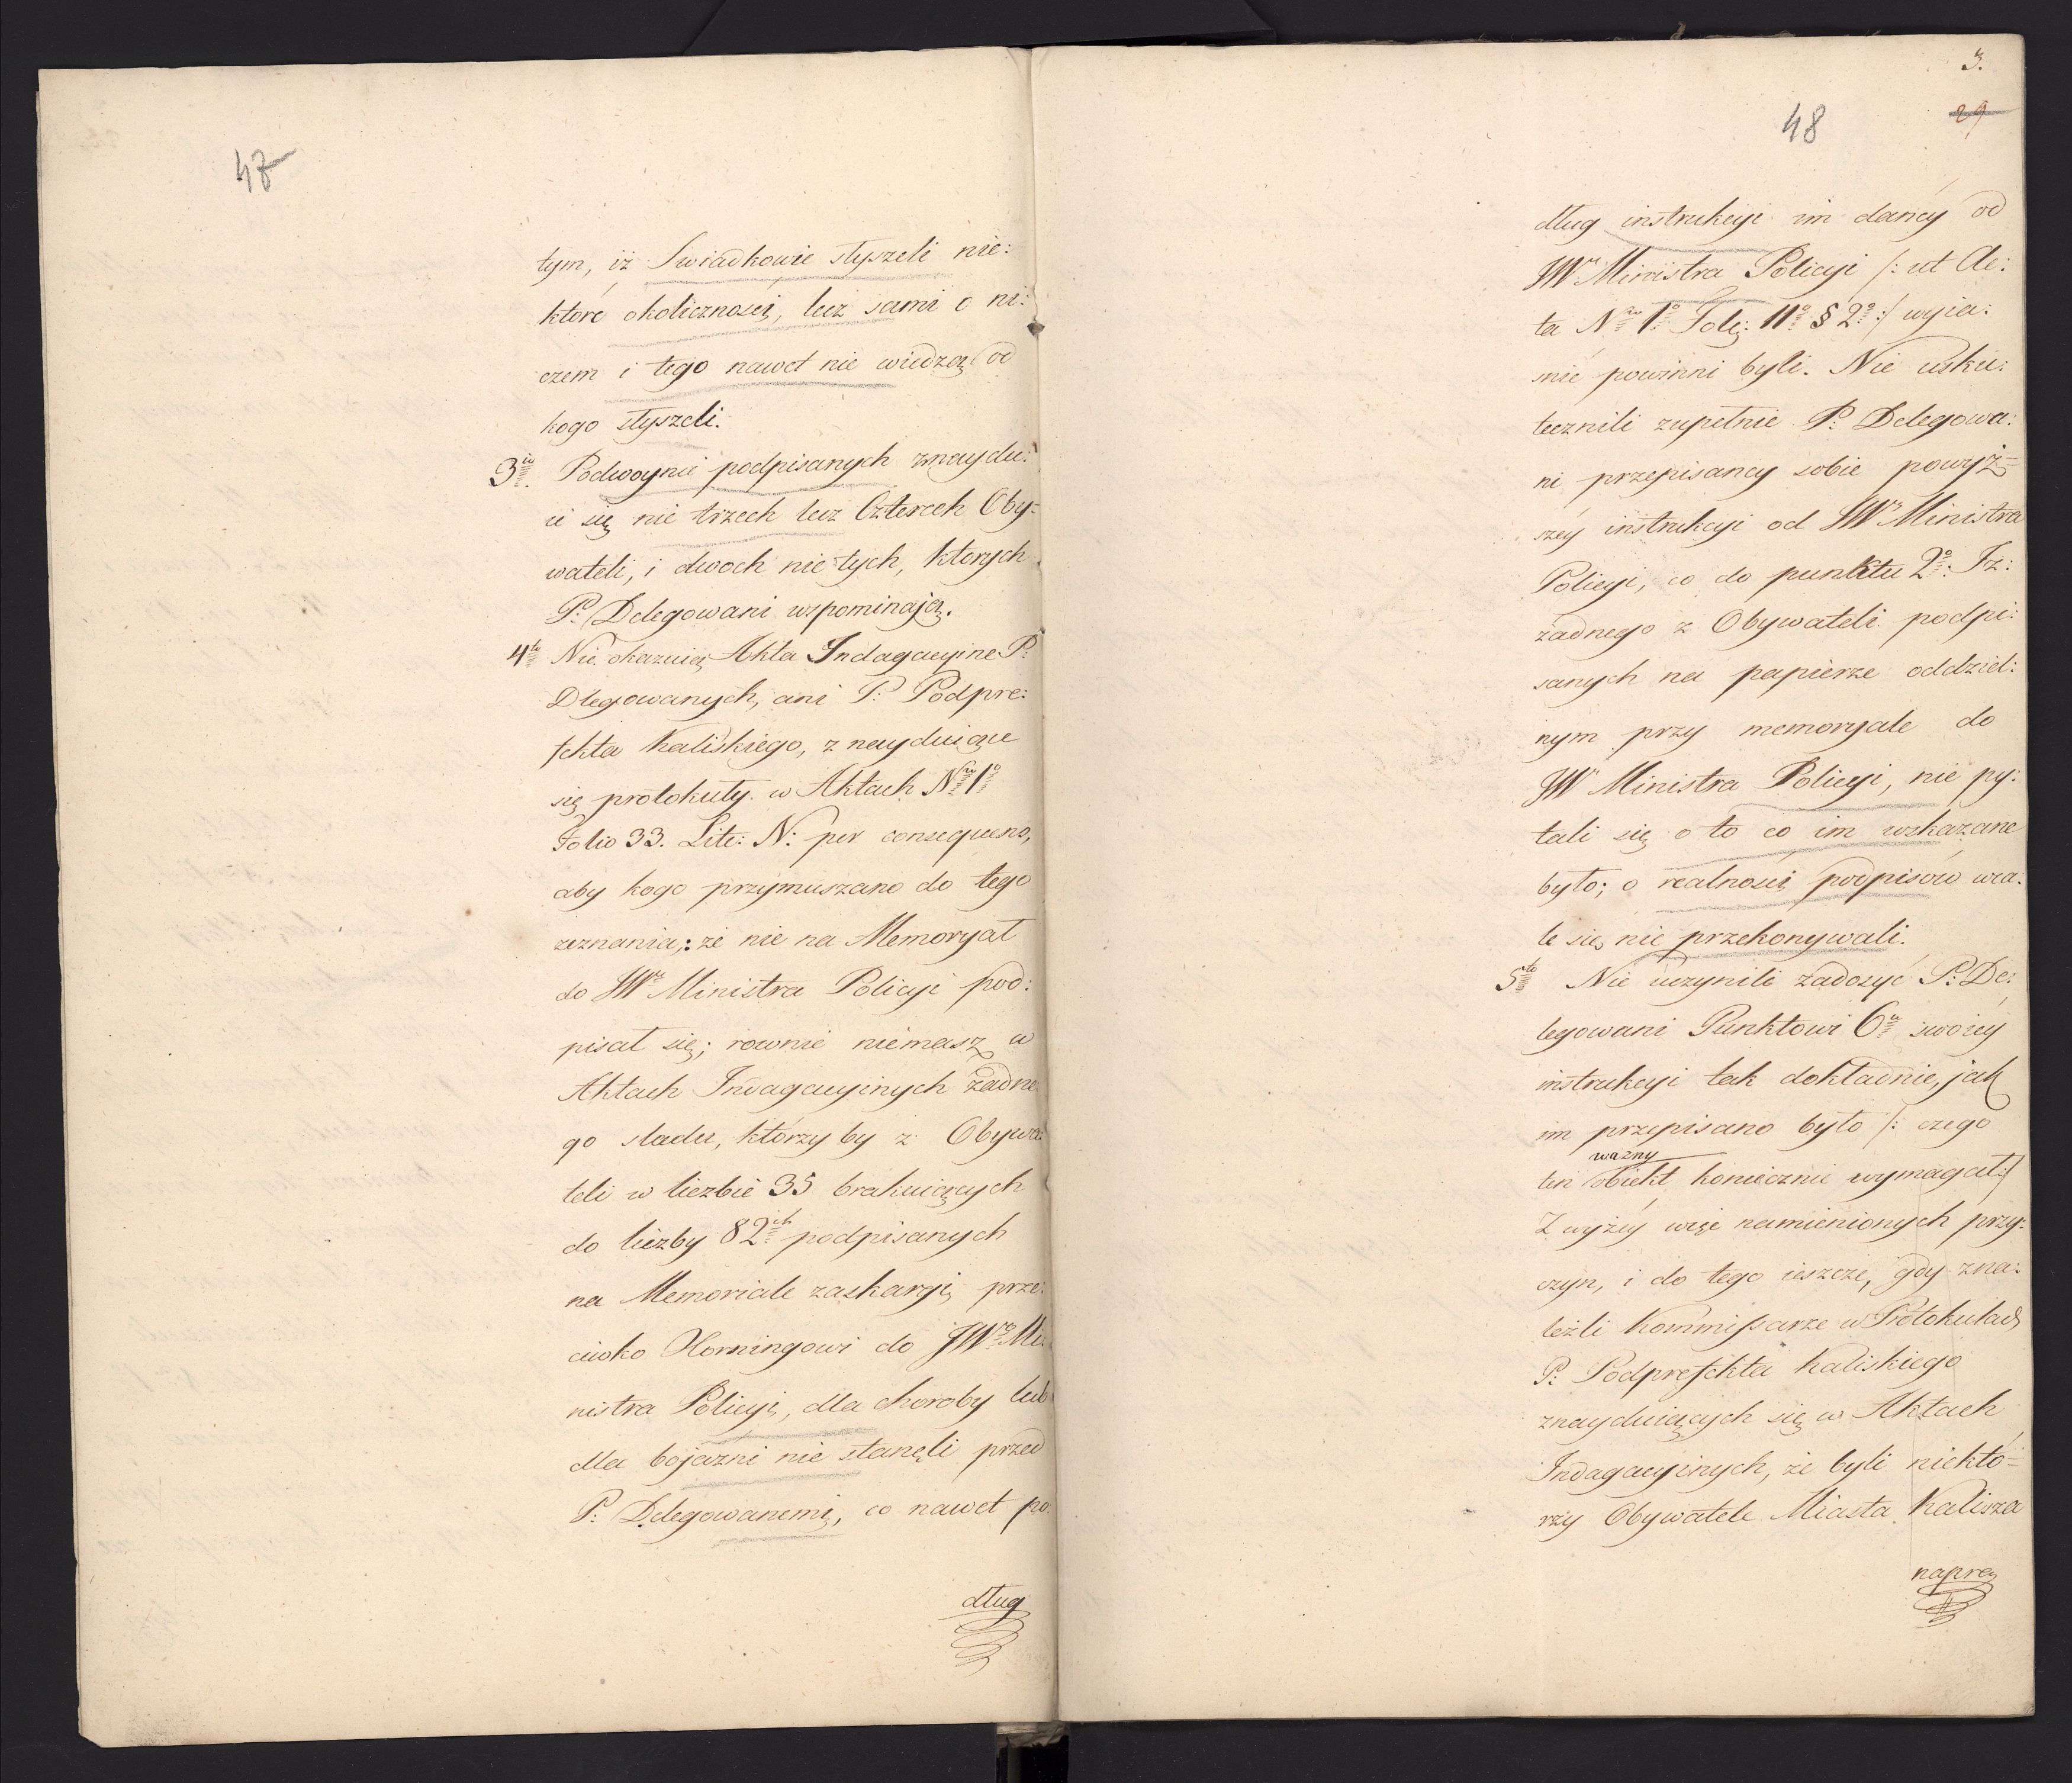 47
tym, iż Swiadkowie słyszeli nie:
ktore okoliczności, lecz sami o ni:
czem i tego nawet nie wiedzą od
kogo słyszeli.
3io Podwoynie podpisanych znaydu:
ie się nie trzech lecz Czterech Oby=
wateli, i dwoch nie tych, ktorych
P: Delegowani wspominają.
4to Nie okazuią Akta Indagacyine P:
Dlegowanych, ani P: Podpre:
fekta Kaliskiego, znayduiące
się protokuły w Aktach Nro 1o
Folio 33. Lite: N: per consequens,
aby kogo przymuszano do tego
zeznania; że nie na Memoryał
do JWo Ministra Policyi pod:
pisał się; rownie niemasz w
Aktach Indagacyinych żadne:
go sladu, którzy by z Obywa:
teli w liczbie 35 brakuiących
do liczby 82ch podpisanych
na Memoriale zaskargi, prze:
ciwko Horningowi do JWgo Mi:
nistra Policyi, dla choroby lub
dla bojazni nie stanęli przed
P: Delegowanemi, co nawet po:
dług
3.
29
48
dług instrukcyi im daney od
JWo Ministra Policyi /: ut Ac:
ta Nro 1o Folę: 11o § 2o :/ wyia:
snić powinni byli. Nie usku:
tecznili zupełnie P: Delegowa:
ni przepisaney sobie powyż=
szey instrukcyi od JWo Ministra
Policyi, co do punktu 2o: Iz:
żadnego z Obywateli podpi:
sanych na papierze oddziel:
nym przy memoryale do
JWo Ministra Policyi, nie py:
tali się o to co im wskazane
było; o realności podpisów wca:
le się nie przekonywali.
5to Nie uczynili zadosyć P: De:
legowani Punktowi 6u swoiey
instrukcyi tak dokładnie, jak
im przepisano było /: czego
ważny
ten obiekt koniecznie wymagał :/
Z wyżey więc namienionych przy:
czyn, i do tego ieszcze, gdy zna:
leźli Kommissarze w Protokułach
P: Podprefekta Kaliskiego
znayduiących się w Aktach
Indagacyinych, że byli niektó=
rzy Obywatele Miasta Kalisza
naprzę